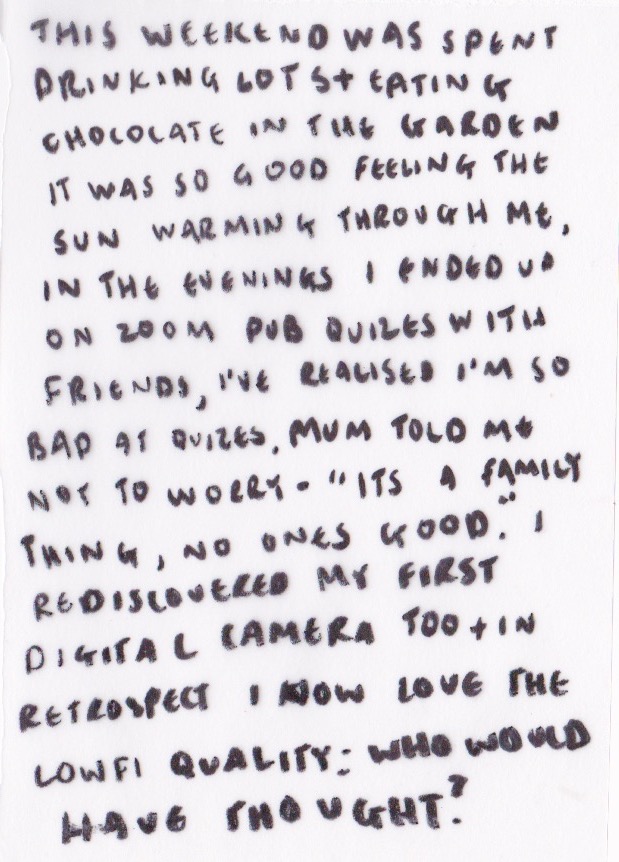 THIS WEEKEND WAS SPENT
DRINKING LOTS + EATING
CHOCOLATE IN THE GARDEN
IT WAS SO GOOD FEELING THE
SUN WARMING THROUGH ME,
IN THE EVENINGS I ENDED UP
ON ZOOM PUB QUIZES WITH
FRIENDS, I'VE REALISED I'M SO
BAD AT QUIZES. MUM TOLD ME
NOT TO WORRY - "ITS A FAMILY
THING, NO ONES GOOD." I
REDISCOVERED MY FIRST
DIGITAL CAMERA TOO + IN
RETROSPECT I NOW LOVE THE
LOWFI QUALITY: WHO WOULD
HAVE THOUGHT?